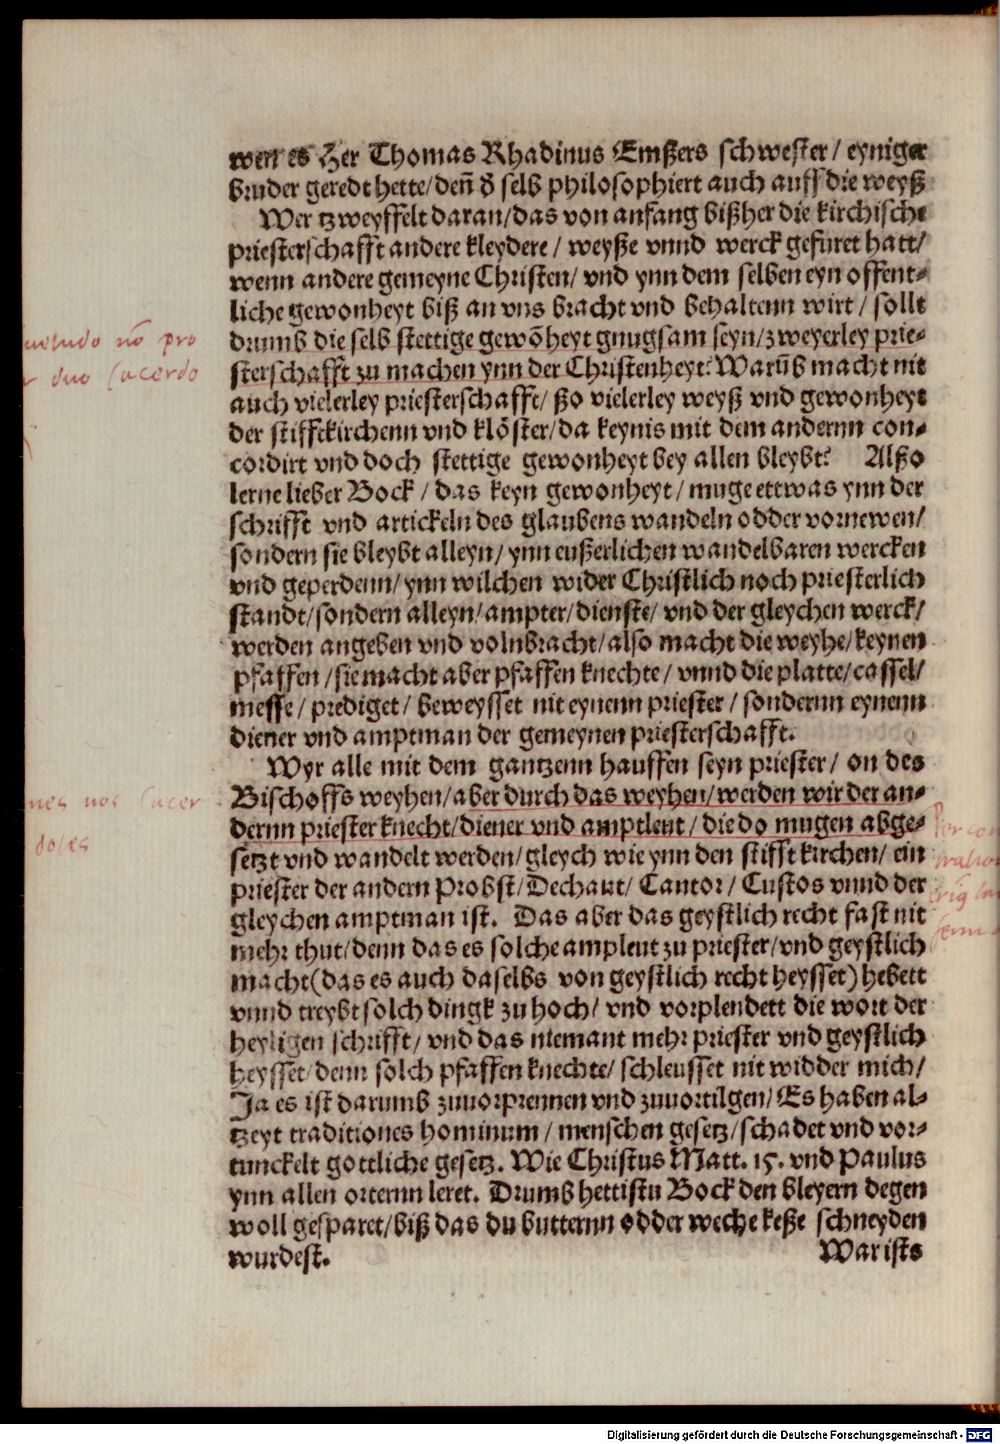 wen es Her Thomas Rhadinus Emßers schwester/ eyniger
bruder geredt hette/ deñ d̕ selb philosophiert auch auff die weyß
Wer tzweyffelt daran/ das von anfang bißher die kirchische
priesterschafft andere kleydere / weyße vnnd werck gefuret hatt/
wenn andere gemeyne Christen/ vnd ynn dem selben eyn offent⸗
liche gewonheyt biß an vns bracht vnd behaltenn wirt / sollt
drumb die selb stettige gewõheyt gnugsam seyn/ zweyerley prie⸗
sterschafft zu machen ynn der Christenheyt? Warũb macht nit
auch vielerley priesterschafft/ ßo vielerley weyß vnd gewonheyt
der stifftkirchenn vnd klöster/ da keynis mit dem andernn con⸗
cordirt vnd doch stettige gewonheyt bey allen bleybt? Alßo
lerne lieber Bock / das keyn gewonheyt / muge ettwas ynn der
schrifft vnd artickeln des glaubens wandeln odder vornewen/
sondern sie bleybt alleyn/ ynn eußerlichen wandelbaren wercken
vnd geperdenn/ ynn wilchen wider Christlich noch priesterlich
standt/ sondern alleyn/ ampter/ dienste/ vnd der gleychen werck/
werden angeben vnd volnbracht/ also macht die weyhe/ keynen
pfaffen / sie macht aber pfaffen knechte/ vnnd die platte/ cassel/
messe / prediget / beweysset nit eynenn priester / sondernn eynenn
diener vnd amptman der gemeynen priesterschafft.
Wyr alle mit dem gantzenn hauffen seyn priester/ on des
Bischoffs weyhen/ aber durch das weyhen/ werden wir der an⸗
dernn priester knecht/ diener vnd amptleut / die do mugen abge⸗
setzt vnd wandelt werden/ gleych wie ynn den stifft kirchen/ ein
priester der andern Probst/ Dechant/ Cantor / Custos vnnd der
gleychen amptman ist. Das aber das geystlich recht fast nit
mehr thut/ denn das es solche ampleut zu priester/ vnd geystlich
macht (das es auch daselbs von geystlich recht heysset) hebett
vnnd treybt solch dingk zu hoch/ vnd vorplendett die wort der
heyligen schrifft/ vnd das niemant mehr priester vnd geystlich
heysset/ denn solch pfaffen knechte/ schleusset nit widder mich/
Ja es ist darumb zuuorprennen vnd zuuortilgen/ Es haben al⸗
tzeyt traditiones hominum / menschen gesetz/ schadet vnd vor⸗
tunckelt gottliche gesetz. Wie Christus Matt. 15. vnd Paulus
ynn allen orternn leret. Drumb hettistu Bock den bleyern degen
woll gesparet/ biß das du butternn odder weche keße schneyden
wurdest.
War ists
uetudo nõ pro
duo sacerdo
nes nos sacer
dotes
Digitalisierung gefördert durch die Deutsche Forschungsgemeinschaft - DFG